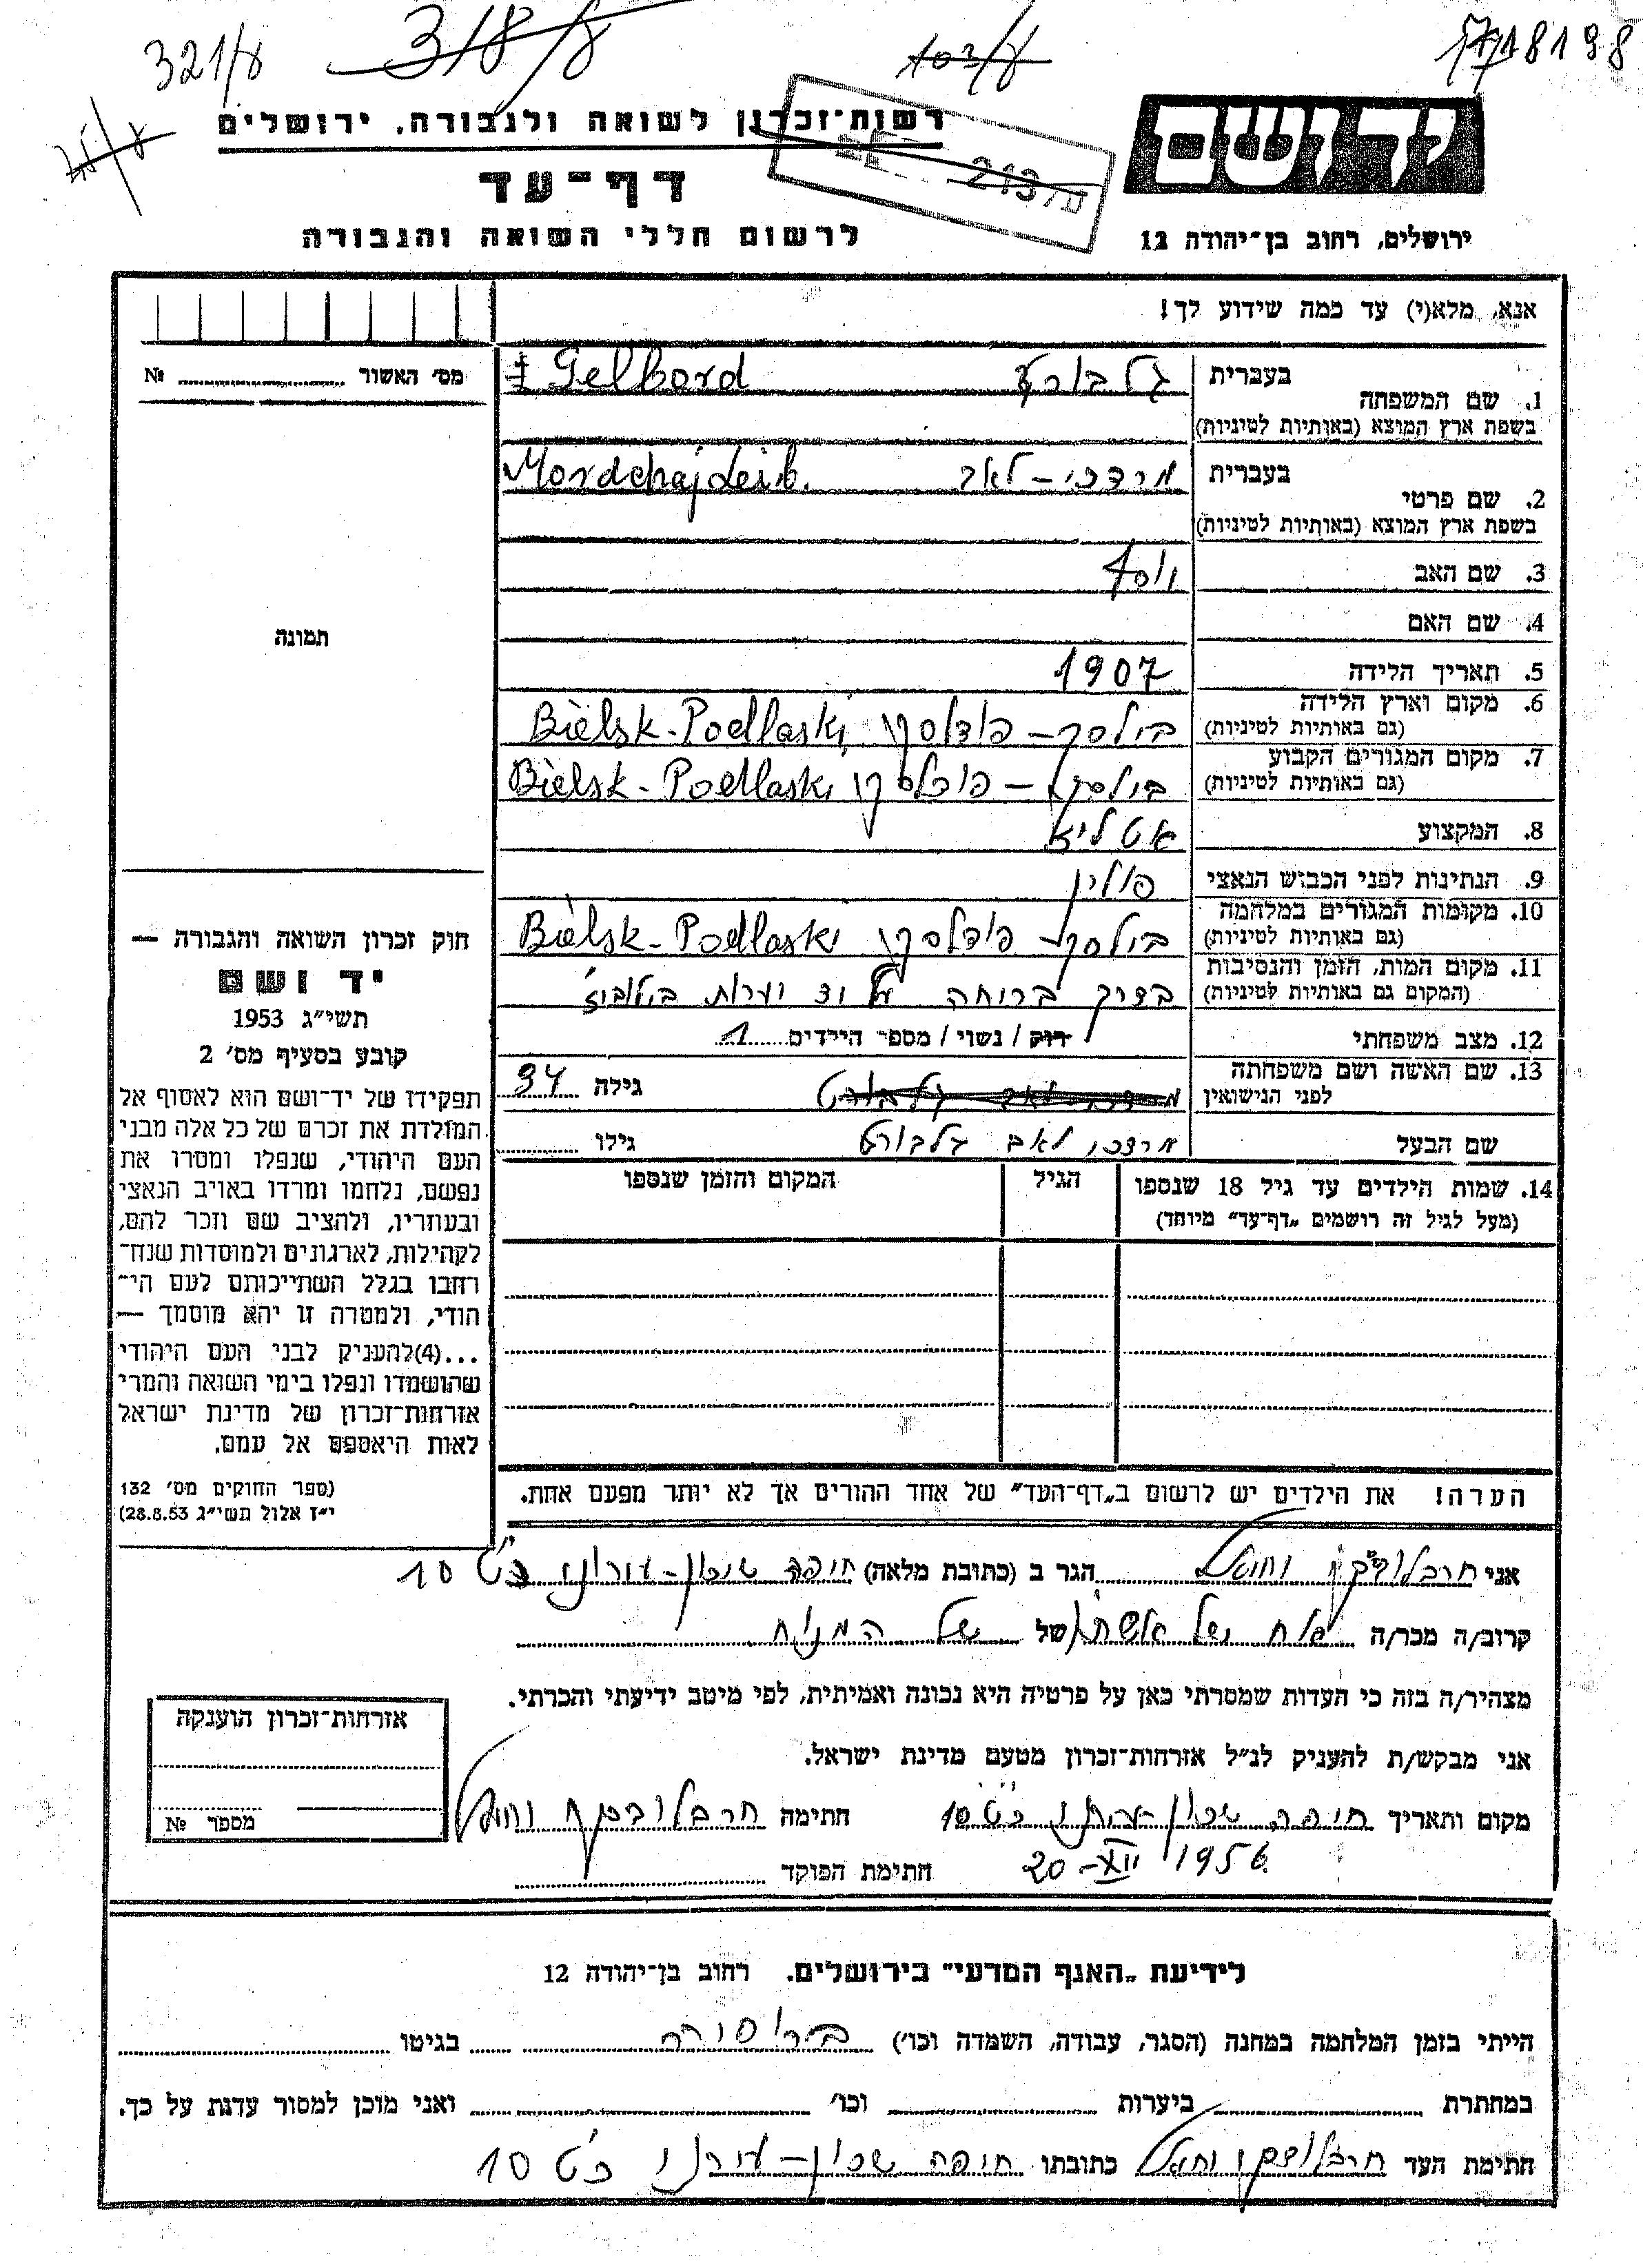 321/ע 318/ע 103/ע 1718198
רשות־זכרון לשואה ולגבורה, ירושלים
יד ושם
דף־עד
213/ע
לרשום חללי השואה והגבורה
ירושלים, רחוב בן־יהודה 12
אנא, מלא(י) עד כמה שידוע לך!
מס' האשור № ........
1. שם המשפחה בעברית גלבורט Gelbord
בשפת ארץ המוצא (באותיות לטיניות)
2. שם פרטי בעברית מרדכי – לאב Mordchaj Leib.
בשפת ארץ המוצא (באותיות לטיניות)
3. שם האב יוסף
4. שם האם
תמונה
5. תאריך הלידה 1907
6. מקום וארץ הלידה בילסק – פודלסקי Bielsk-Podlaski,
(גם באותיות לטיניות)
7. מקום המגורים הקבוע בילסק – פודלסקי Bielsk-Podlaski
(גם באותיות לטיניות)
8. המקצוע אטליז
9. הנתינות לפני הכבוש הנאצי פולין
10. מקומות המגורים במלחמה בילסק – פודלסקי Bielsk-Podlaski
(גם באותיות לטיניות)
11. מקום המות, הזמן והנסיבות בדרך ברוחה על יד יערות
(המקום גם באותיות לטיניות)
12. מצב משפחתי רוק / נשוי / מספר הילדים 1
13. שם האשה ושם משפחתה לפני הנישואין מרדכי לאב גלבורט גילה 34
שם הבעל מרדכי לאב גלבורט גילו ........
14. שמות הילדים עד גיל 18 שנספו הגיל המקום והזמן שנספו
(מעל לגיל זה רושמים „דף־עד" מיוחד)
חוק זכרון השואה והגבורה —
יד ושם
תשי"ג 1953
קובע בסעיף מס' 2
תפקידו של יד־ושם הוא לאסוף אל
המולדת את זכרם של כל אלה מבני
העם היהודי, שנפלו ומסרו את
נפשם, נלחמו ומרדו באויב הנאצי
ובעוזריו, ולהציב שם וזכר להם,
לקהילות, לארגונים ולמוסדות שנח־
רבו בגלל השתייכותם לעם הי־
הודי, ולמטרה זו יהא מוסמך —
...(4)להעניק לבני העם היהודי
שהושמדו ונפלו בימי השואה והמרי
אזרחות־זכרון של מדינת ישראל
לאות היאספם אל עמם.
(ספר החוקים מס' 132
י"ז אלול תשי"ג 28.8.53)
הערה! את הילדים יש לרשום ב„דף־העד" של אחד ההורים אך לא יותר מפעם אחת.
אני הגר ב (כתובת מלאה) חיפה שיכון – 10
קרוב/ה מכר/ה אח של אשתו של של המנוח
מצהיר/ה בזה כי העדות שמסרתי כאן על פרטיה היא נכונה ואמיתית, לפי מיטב ידיעתי והכרתי.
אני מבקש/ת להעניק לנ"ל אזרחות־זכרון מטעם מדינת ישראל.
מקום ותאריך חיפה שכון – 10 חתימה
20 – XII 1956 חתימת הפוקד ........
אזרחות־זכרון הוענקה
מספר №
לידיעת „האגף המדעי" בירושלים. רחוב בן־יהודה 12
הייתי בזמן המלחמה במחנה (הסגר, עבודה, השמדה וכו') ברוסיה בגיטו ........
במחתרת ........ ביערות ........ וכו' ........ ואני מוכן למסור עדות על כך.
חתימת העד כתובתו חיפה שכון – 10